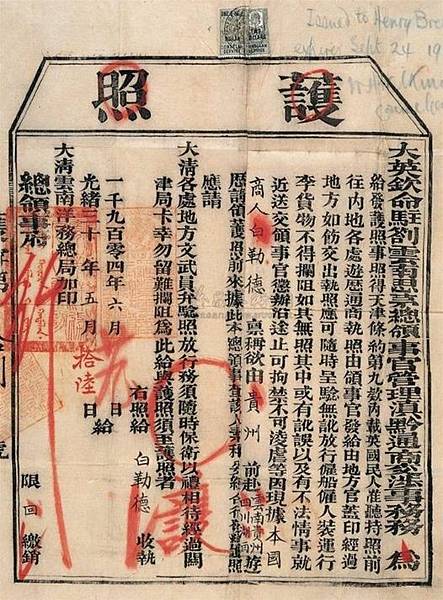 Issued to Henry
expires Sept 24 19
護照
大英欽命駐劄雲南思茅總領事官管理滇黔通商交涉事務 為
給發護照事照得天津條約第九欵內載英國民人准聽持照前
往內地各處遊歷通商執照由領事官發給由地方官蓋印經過
地方如飭交出執照應可隨時呈驗無訛放行僱船僱人裝運行
李貨物不得攔阻如其無照其中或有訛誤以及有不法情事就
近送交領事官懲辦沿途止可拘禁不可凌虐等因現據本國
商人白勒德 稟稱欲由貴州 前赴雲南貴州四川湖南遊
歷請領護照前來據此本總領事
應請
大清各處地方文武員弁驗照放行務須隨時保衛以禮相待經過關
津局卡幸勿留難攔阻為此給與護照須至護照者
右照給 白勒德 收執
一千九百零四年六月 日給
光緒三十年五月拾陸日
大清雲南洋務總局加印
總領事府
限 回 繳銷